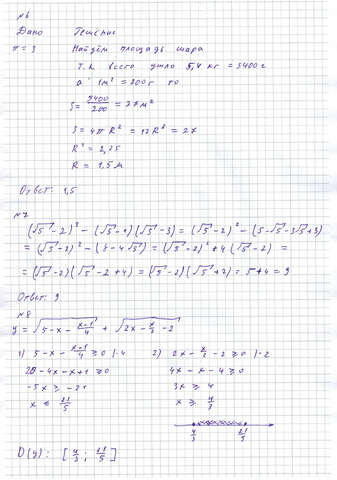 №6
Дано Решение
π = 3 Найдём площадь шара
Т.к. всего ушло 5,4 кг = 5400 г
а 1м² = 200 г то
S = 5400/200 = 27 м²
S = 4πR² = 12R² = 27
R² = 2,25
R = 1,5 м
Ответ: 1,5
№7
(√5 - 2)² - (√5 - 1)(√5 - 3) = (√5 - 2)² - (5 - √5 - 3√5 + 3)
= (√5 - 2)² - (8 - 4√5) = (√5 - 2)² + 4(√5 - 2) =
= (√5 - 2)(√5 - 2 + 4) = (√5 - 2)(√5 + 2) = 5 + 4 = 9
Ответ: 9
№8
y = √(5 - x - (x-1)/4) + √(2x - x/2 - 2)
1) 5 - x - (x-1)/4 ≥ 0 |·4 2) 2x - x/2 - 2 ≥ 0 |·2
20 - 4x - x + 1 ≥ 0 4x - x - 4 ≥ 0
-5x ≥ -21 3x ≥ 4
x ≤ 21/5 x ≥ 4/3
4/3 21/5
D(y): [4/3; 21/5]